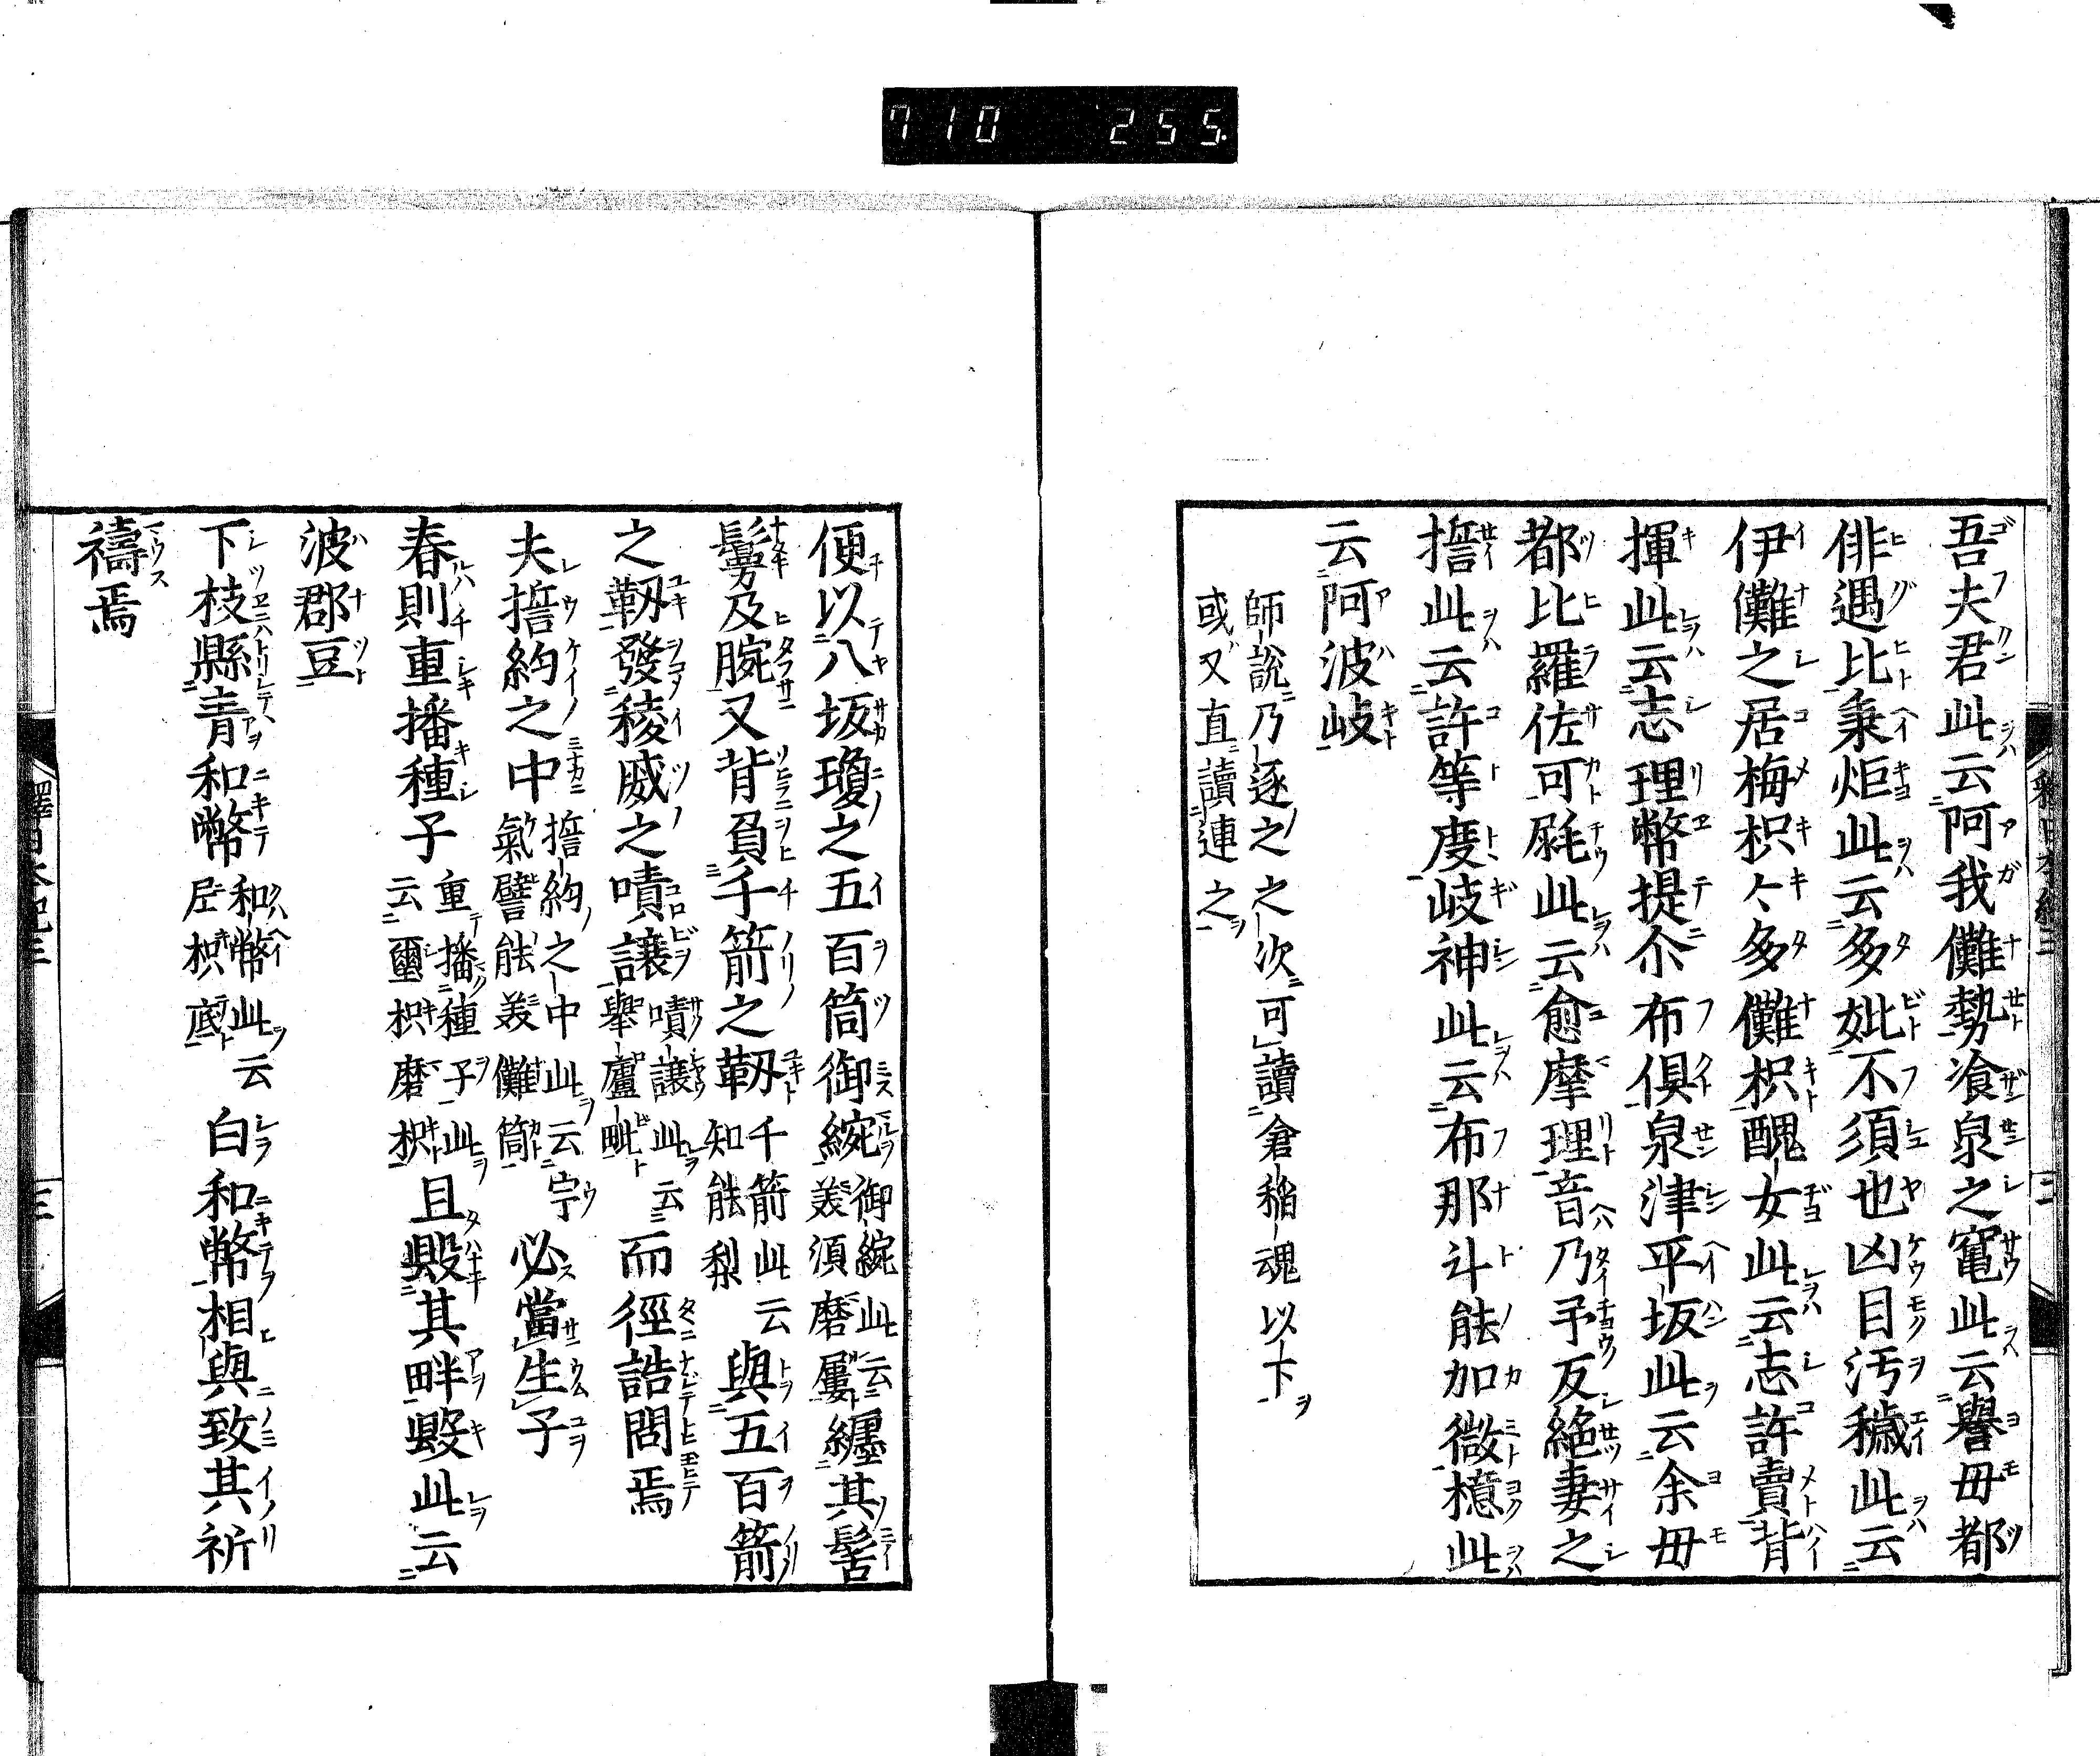 710 255.
吾夫君此云阿我儺勢飡泉之竃此云譽毋都
俳遇比秉炬此云多妣不須也凶目汚穢此云
伊儺之居梅枳々多儺枳醜女此云志許賣背
揮此云志理幣提尒布倶泉津平坂此云余毋
都比羅佐可㞙此云愈摩理音乃予反絶妻之
誓此云許等度岐神此云布那斗能加微檍此
云阿波岐
師説乃逐之之次可讀倉稲魂以下
或又直讀連之
便以八坂瓊之五百筒御綂御綂此云美須磨屢纏其髻
鬘及腕又背負千箭之靫千箭此云知能梨與五百箭
之靫發稜威之嘖讓嘖讓此云擧廬毗而徑詰問焉
夫誓約之中誓約之中此云宇氣譬能美儺筒必當生子
春則重播種子重播種子此云璽枳磨枳且毀其畔毀此云
波郡豆
下枝縣青和幣和幣此云尼枳底白和幣相與致其祈
禱焉